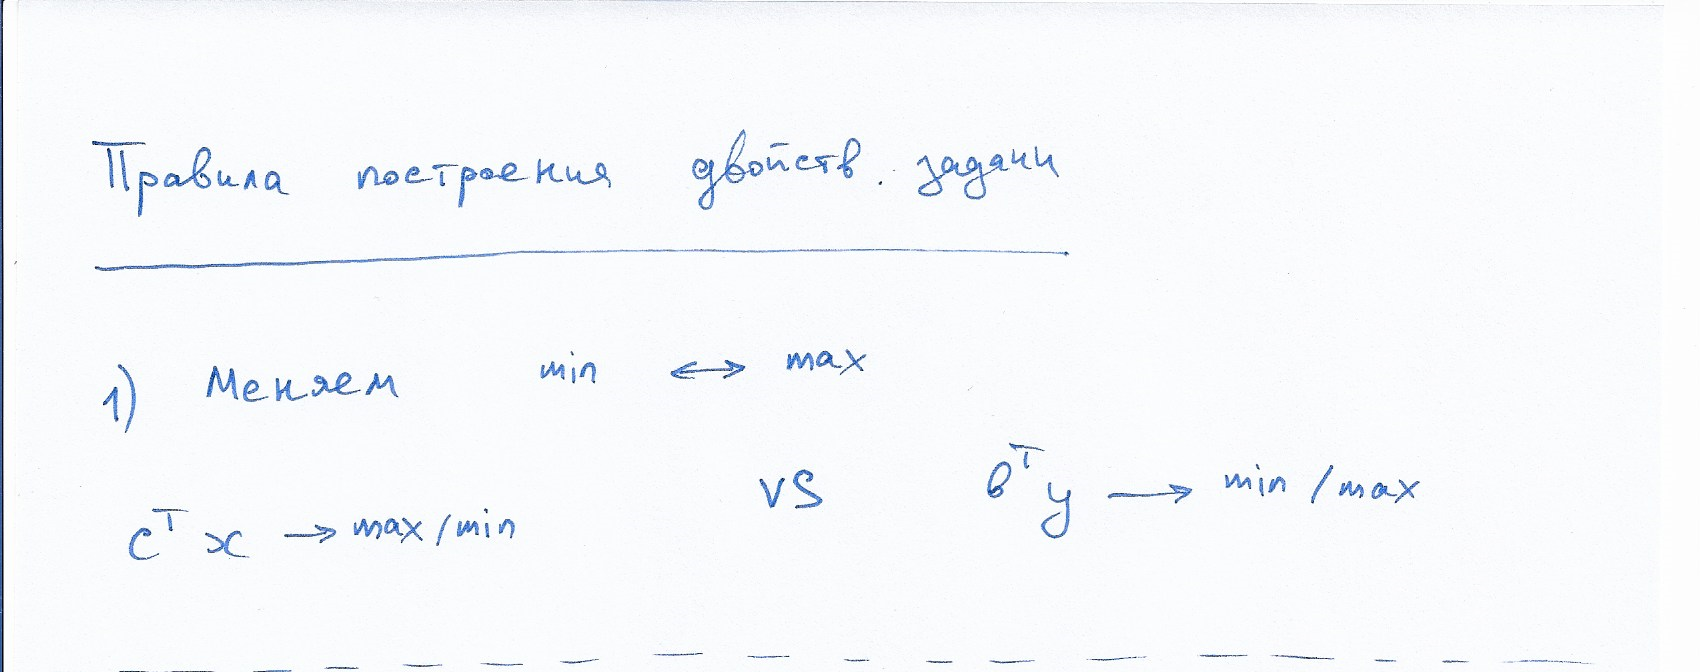 Правила построения двойств. задачи
1) Меняем min ↔ max
cᵀx → max/min vs вᵀy → min/max